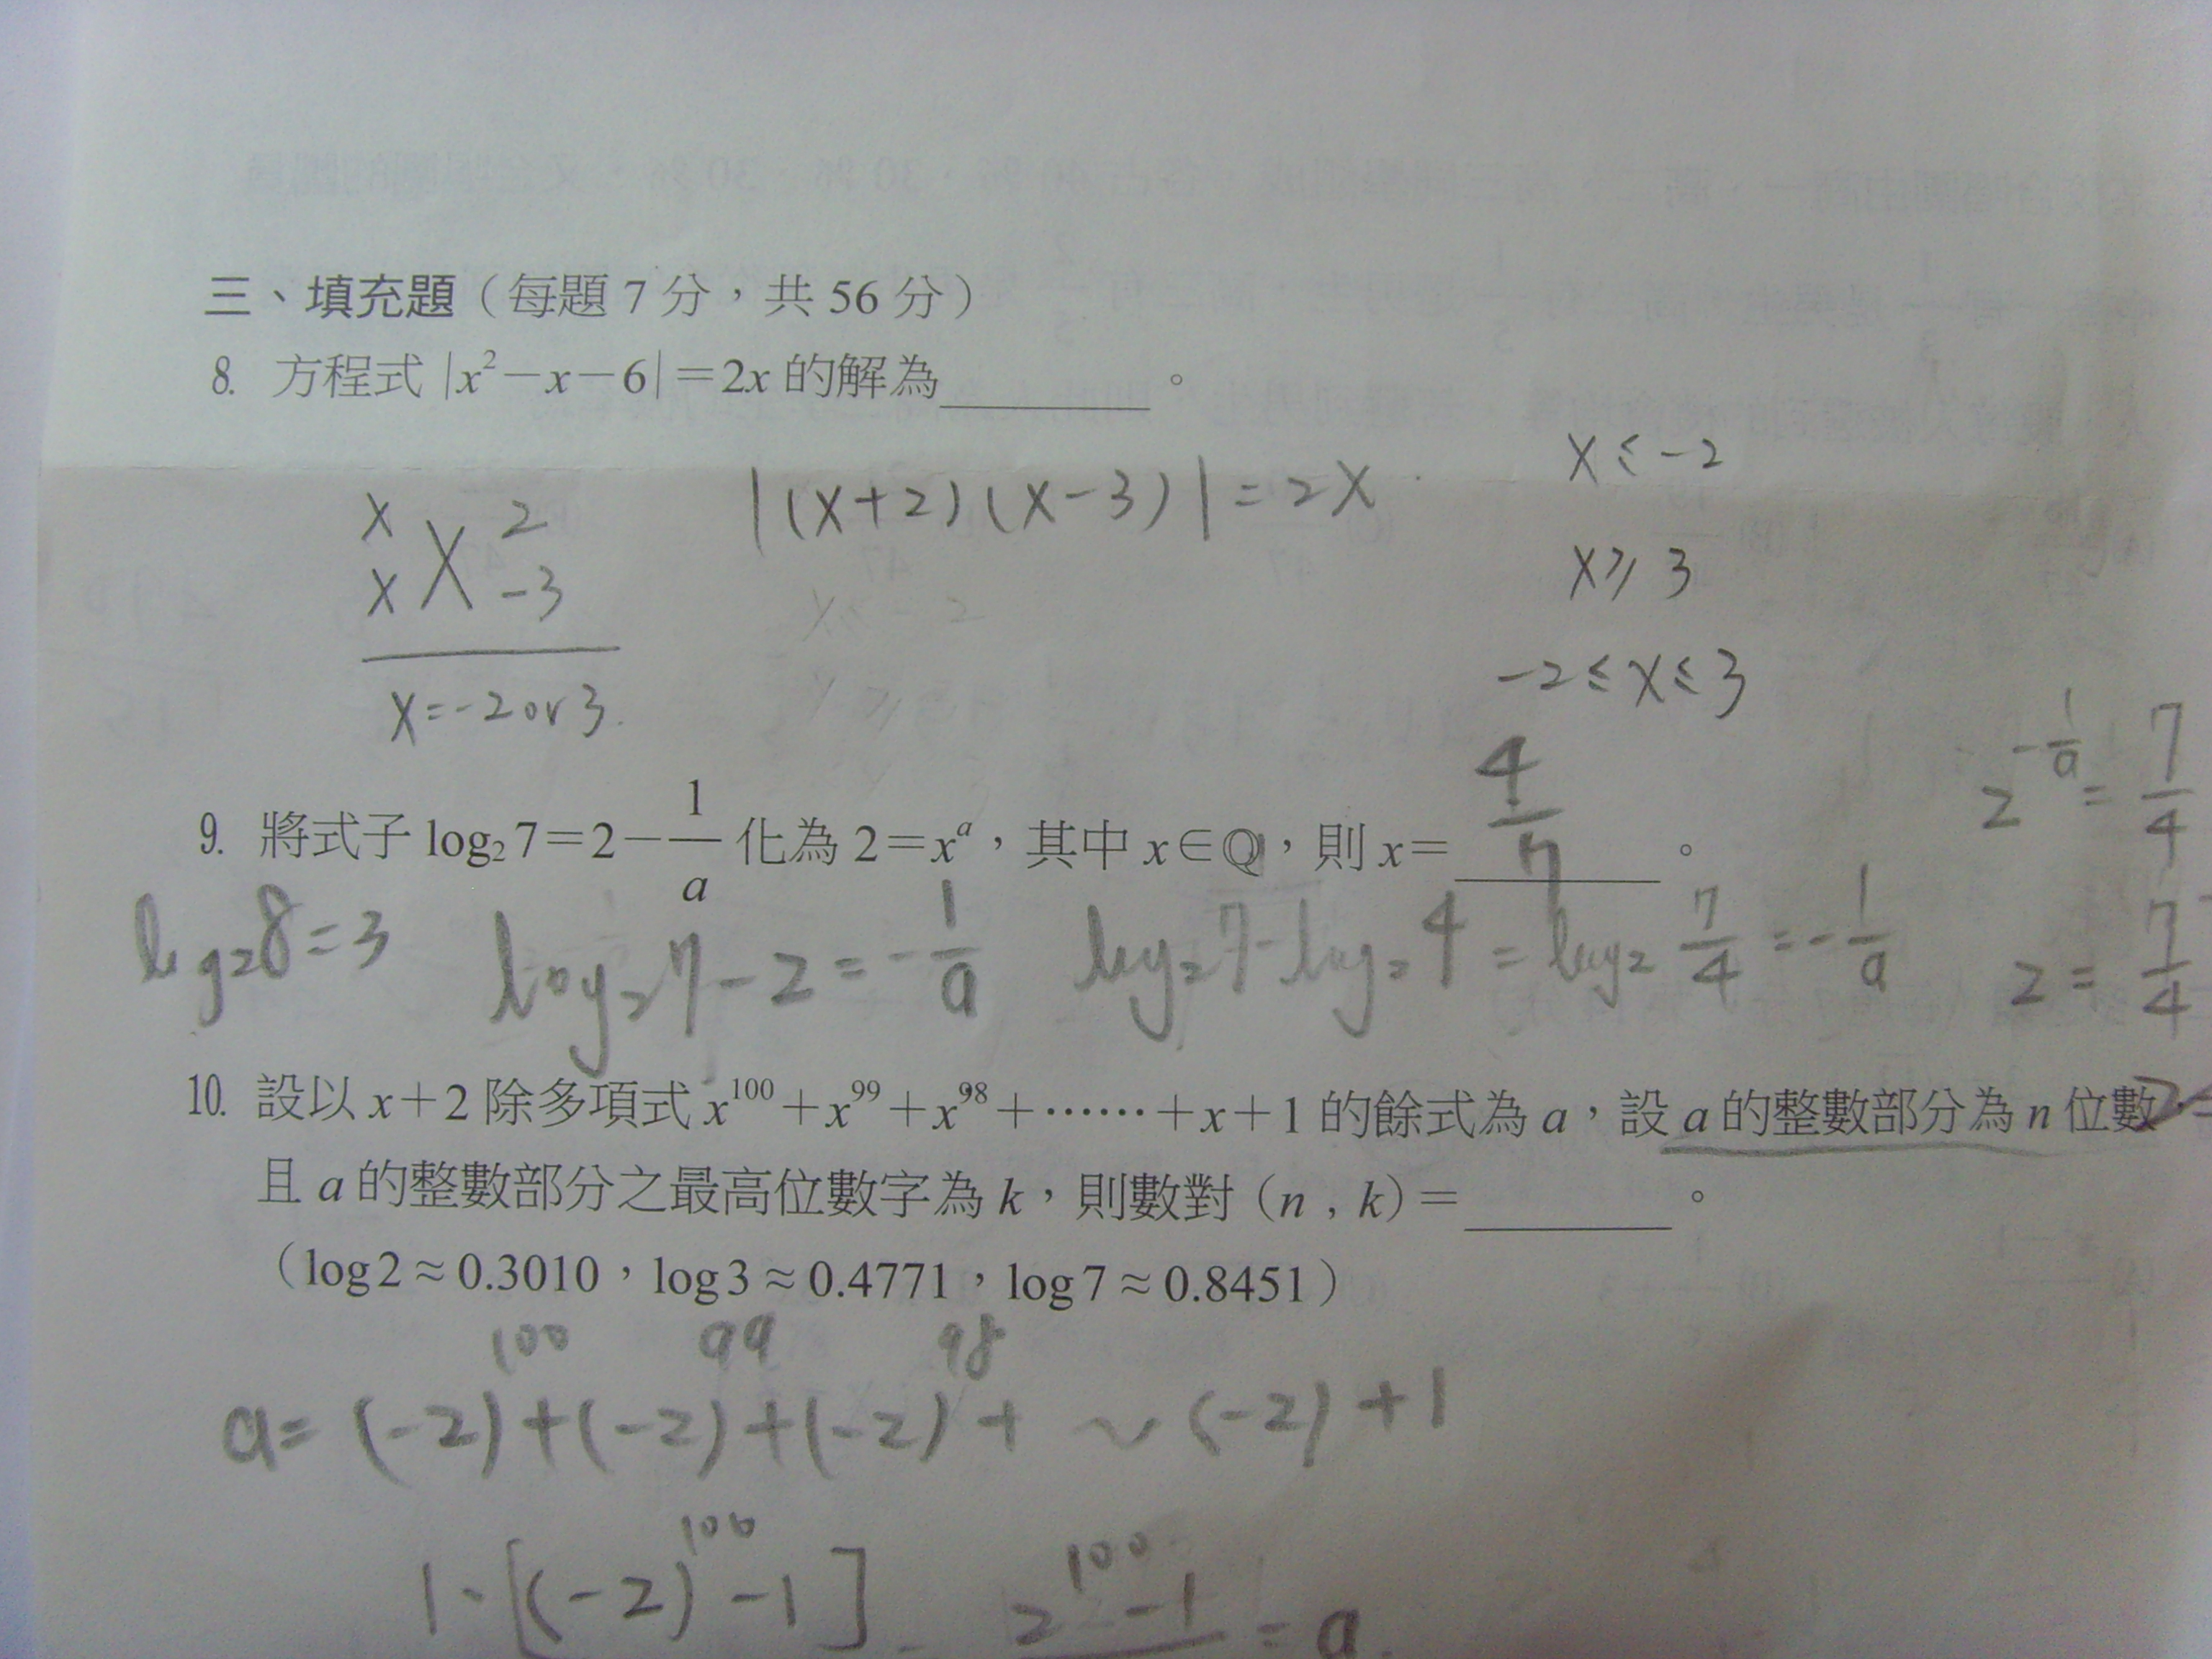 三、填充題（每題 7 分，共 56 分）
8. 方程式 |x²－x－6|＝2x 的解為________。
x 2
x X -3
x=-2 or 3.
|(x+2)(x-3)|=2x
x≤-2
x≥3
-2≤x≤3
9. 將式子 log₂7＝2－1/a 化為 2＝xᵃ，其中 x∈ℚ，則 x＝ 4/7 。
2^(-1/a) = 7/4
log₂8=3
log₂7-2=-1/a
log₂7-log₂4=log₂7/4=-1/a
2=7/4
10. 設以 x＋2 除多項式 x¹⁰⁰＋x⁹⁹＋x⁹⁸＋……＋x＋1 的餘式為 a，設 a 的整數部分為 n 位數
且 a 的整數部分之最高位數字為 k，則數對 (n , k)＝________。
（log2≈0.3010，log3≈0.4771，log7≈0.8451）
a=(-2)¹⁰⁰+(-2)⁹⁹+(-2)⁹⁸+～(-2)+1
1·[(-2)¹⁰⁰-1]
2¹⁰⁰-1 = a